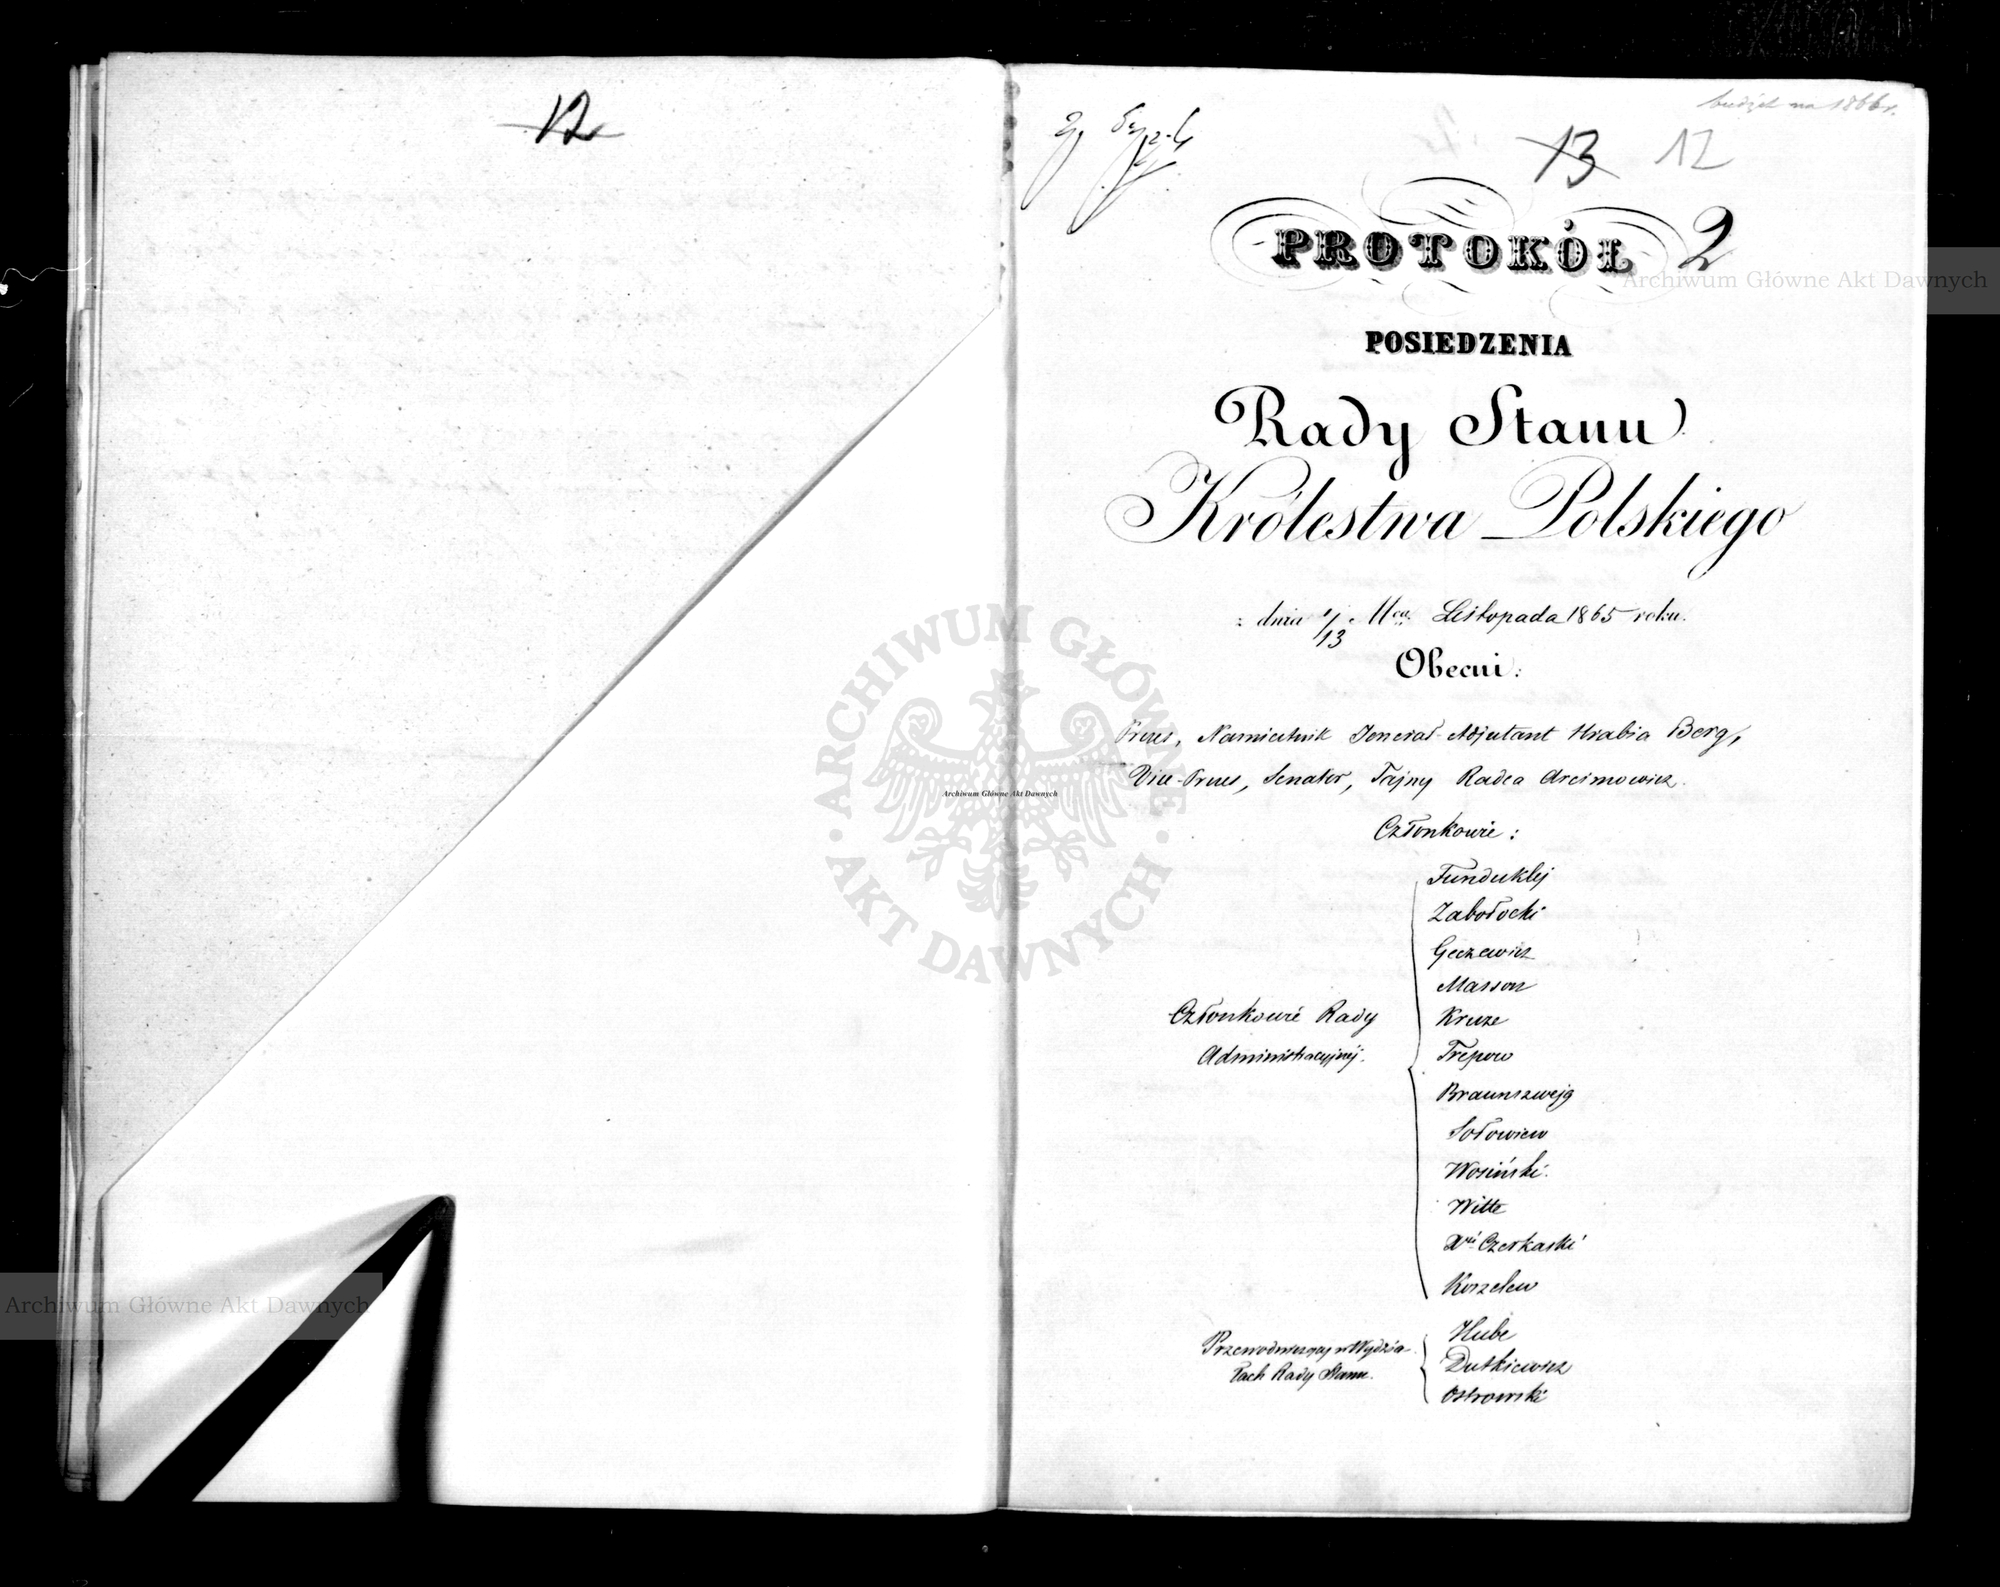 12
budżet na 1866 r.
13 12
PROTOKÓŁ 2
POSIEDZENIA
Rady Stanu
Królestwa Polskiego
z dnia 1/13 Mca Listopada 1865 roku.
Obecni:
Prezes, Namiestnik Jenerał-Adjutant Hrabia Berg,
Vice-Prezes, Senator, Tajny Radca Arcimowicz.
Członkowie:
Funduklej
Zabołocki
Geczewicz
Masson
Członkowie Rady Kruze
Administracyjnéj. Trepow
Braunszwejg
Sołowiew
Wosiński.
Witte
Xże Czerkaski
Koszelew
Hube
Przewodniczący w Wydzia- Dutkiewicz
łach Rady Stanu. Ostrowski
Archiwum Główne Akt Dawnych
ARCHIWUM GŁÓWNE · AKT DAWNYCH ·
Archiwum Główne Akt Dawnych
Archiwum Główne Akt Dawnych